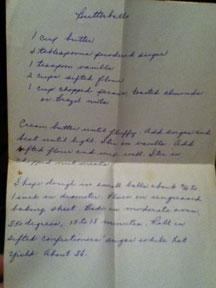 Butterballs
1 cup butter
3 tablespoons powdered sugar
1 teaspoon vanilla
2 cups sifted flour
1 cup chopped pecans, toasted almonds
or Brazil nuts
Cream butter until fluffy. Add sugar and
beat until light. Stir in vanilla. Add
sifted flour and mix well. Stir in
Shape dough in small balls about 3/4 to
1 inch in diameter. Place on ungreased
baking sheet. Bake in moderate oven,
350 degrees, 15 to 18 minutes. Roll in
sifted confectioners' sugar while hot
Yield: About 36.